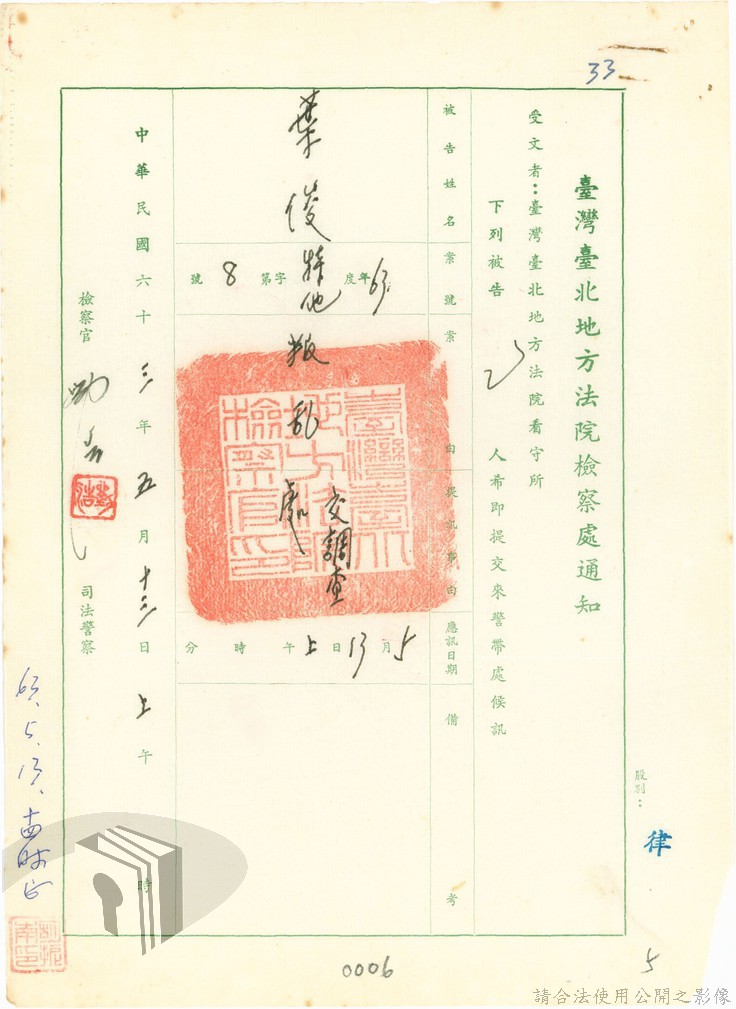 33
臺灣臺北地方法院檢察處通知
受文者：臺灣臺北地方法院看守所
下列被告 乙 人希即提交來警帶處候訊
被告姓名
案號
案由
提訊事由
應訊日期
備考
葉俊
63年度 特他字第8號
叛乱
交調查處
5月13日上午 時 分
中華民國六十三年五月十三日上午 時
檢察官
司法警察
股別：
律
63.5.13.
臺灣臺北地方法院檢察官印
0006
5
請合法使用公開之影像